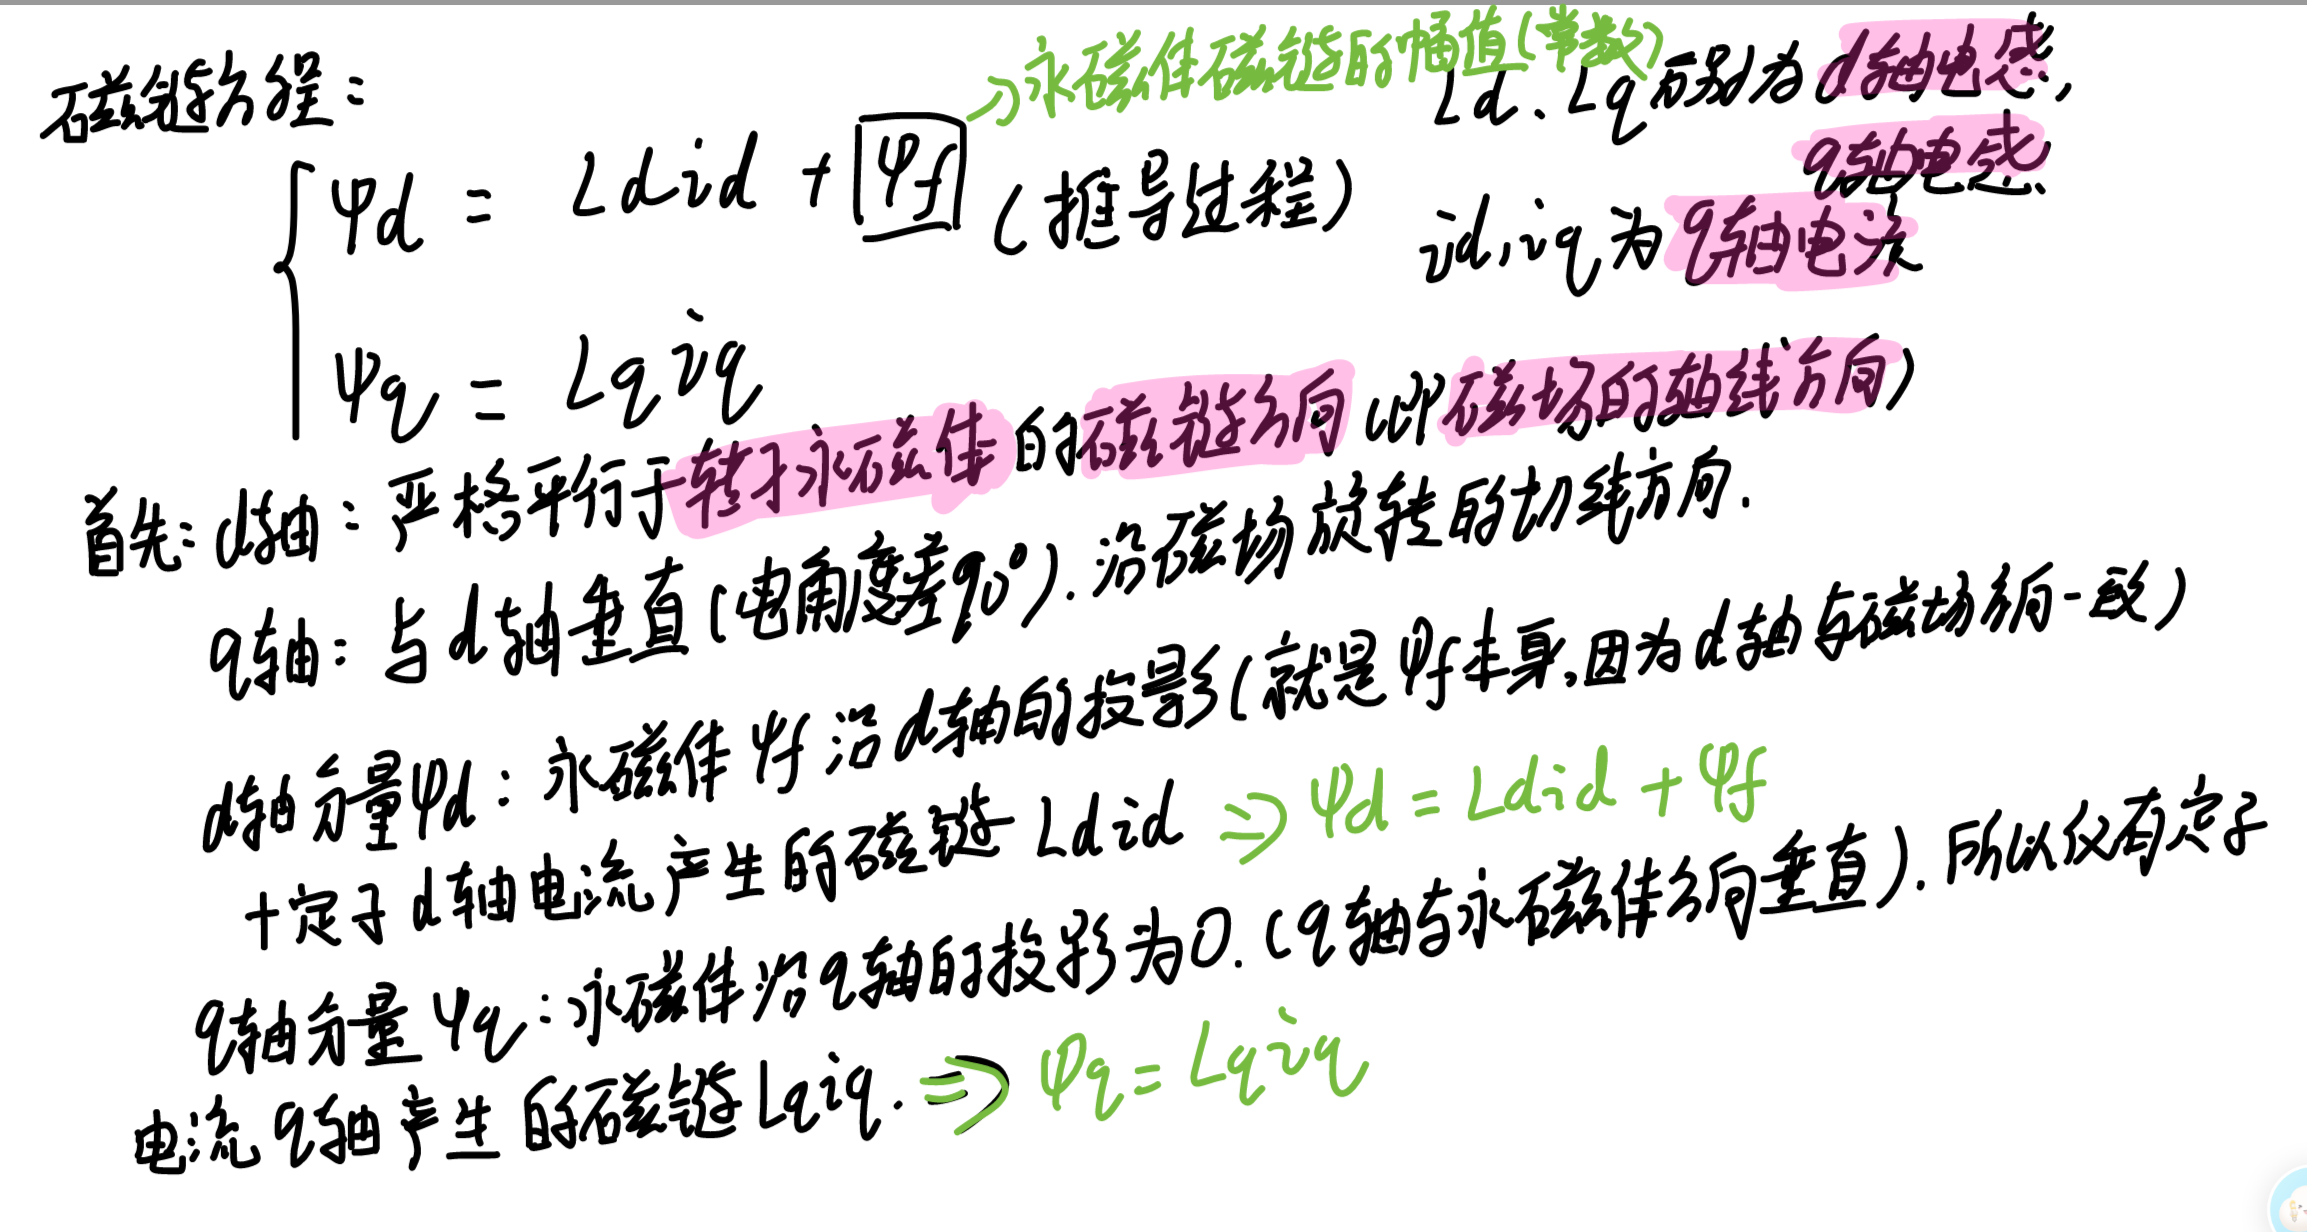 磁链方程：
→永磁体磁链的幅值(常数)
Ld、Lq分别为d轴电感,
q轴电感
ψd = Ldid + ψf (推导过程)
id,iq为q轴电流
ψq = Lqiq
首先:d轴：严格平行于转子永磁体的磁链方向(即磁场的轴线方向)
q轴：与d轴垂直(电角度差90°).沿磁场旋转的切线方向.
d轴分量ψd：永磁体ψf沿d轴的投影(就是ψf本身,因为d轴与磁场方向一致)
+定子d轴电流产生的磁链Ldid ⇒ ψd = Ldid + ψf
q轴分量ψq:永磁体沿q轴的投影为0.(q轴与永磁体方向垂直).所以仅有定子
电流q轴产生的磁链Lqiq. ⇒ ψq = Lqiq